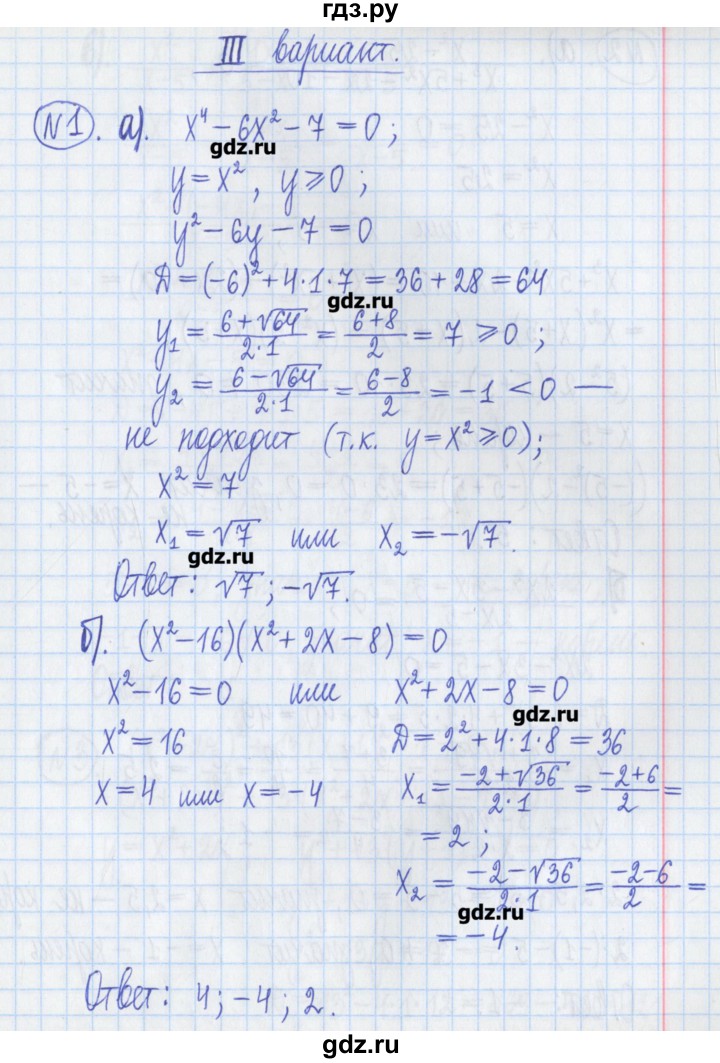 гдз.ру
III вариант.
№1. а). x⁴ − 6x² − 7 = 0;
gdz.ru
y = x², y ⩾ 0;
y² − 6y − 7 = 0
Д = (−6)² + 4·1·7 = 36 + 28 = 64
gdz.ru
y₁ = (6 + √64)/(2·1) = (6 + 8)/2 = 7 ⩾ 0;
y₂ = (6 − √64)/(2·1) = (6 − 8)/2 = −1 < 0 —
не подходит (т.к. y = x² ⩾ 0);
x² = 7
x₁ = √7 или x₂ = −√7.
gdz.ru
Ответ: √7; −√7.
б). (x² − 16)(x² + 2x − 8) = 0
x² − 16 = 0 или x² + 2x − 8 = 0
gdz.ru
x² = 16 Д = 2² + 4·1·8 = 36
x = 4 или x = −4 x₁ = (−2 + √36)/(2·1) = (−2 + 6)/2 =
= 2;
x₂ = (−2 − √36)/(2·1) = (−2 − 6)/2 =
gdz.ru
= −4.
Ответ: 4; −4; 2.
гдз.ру